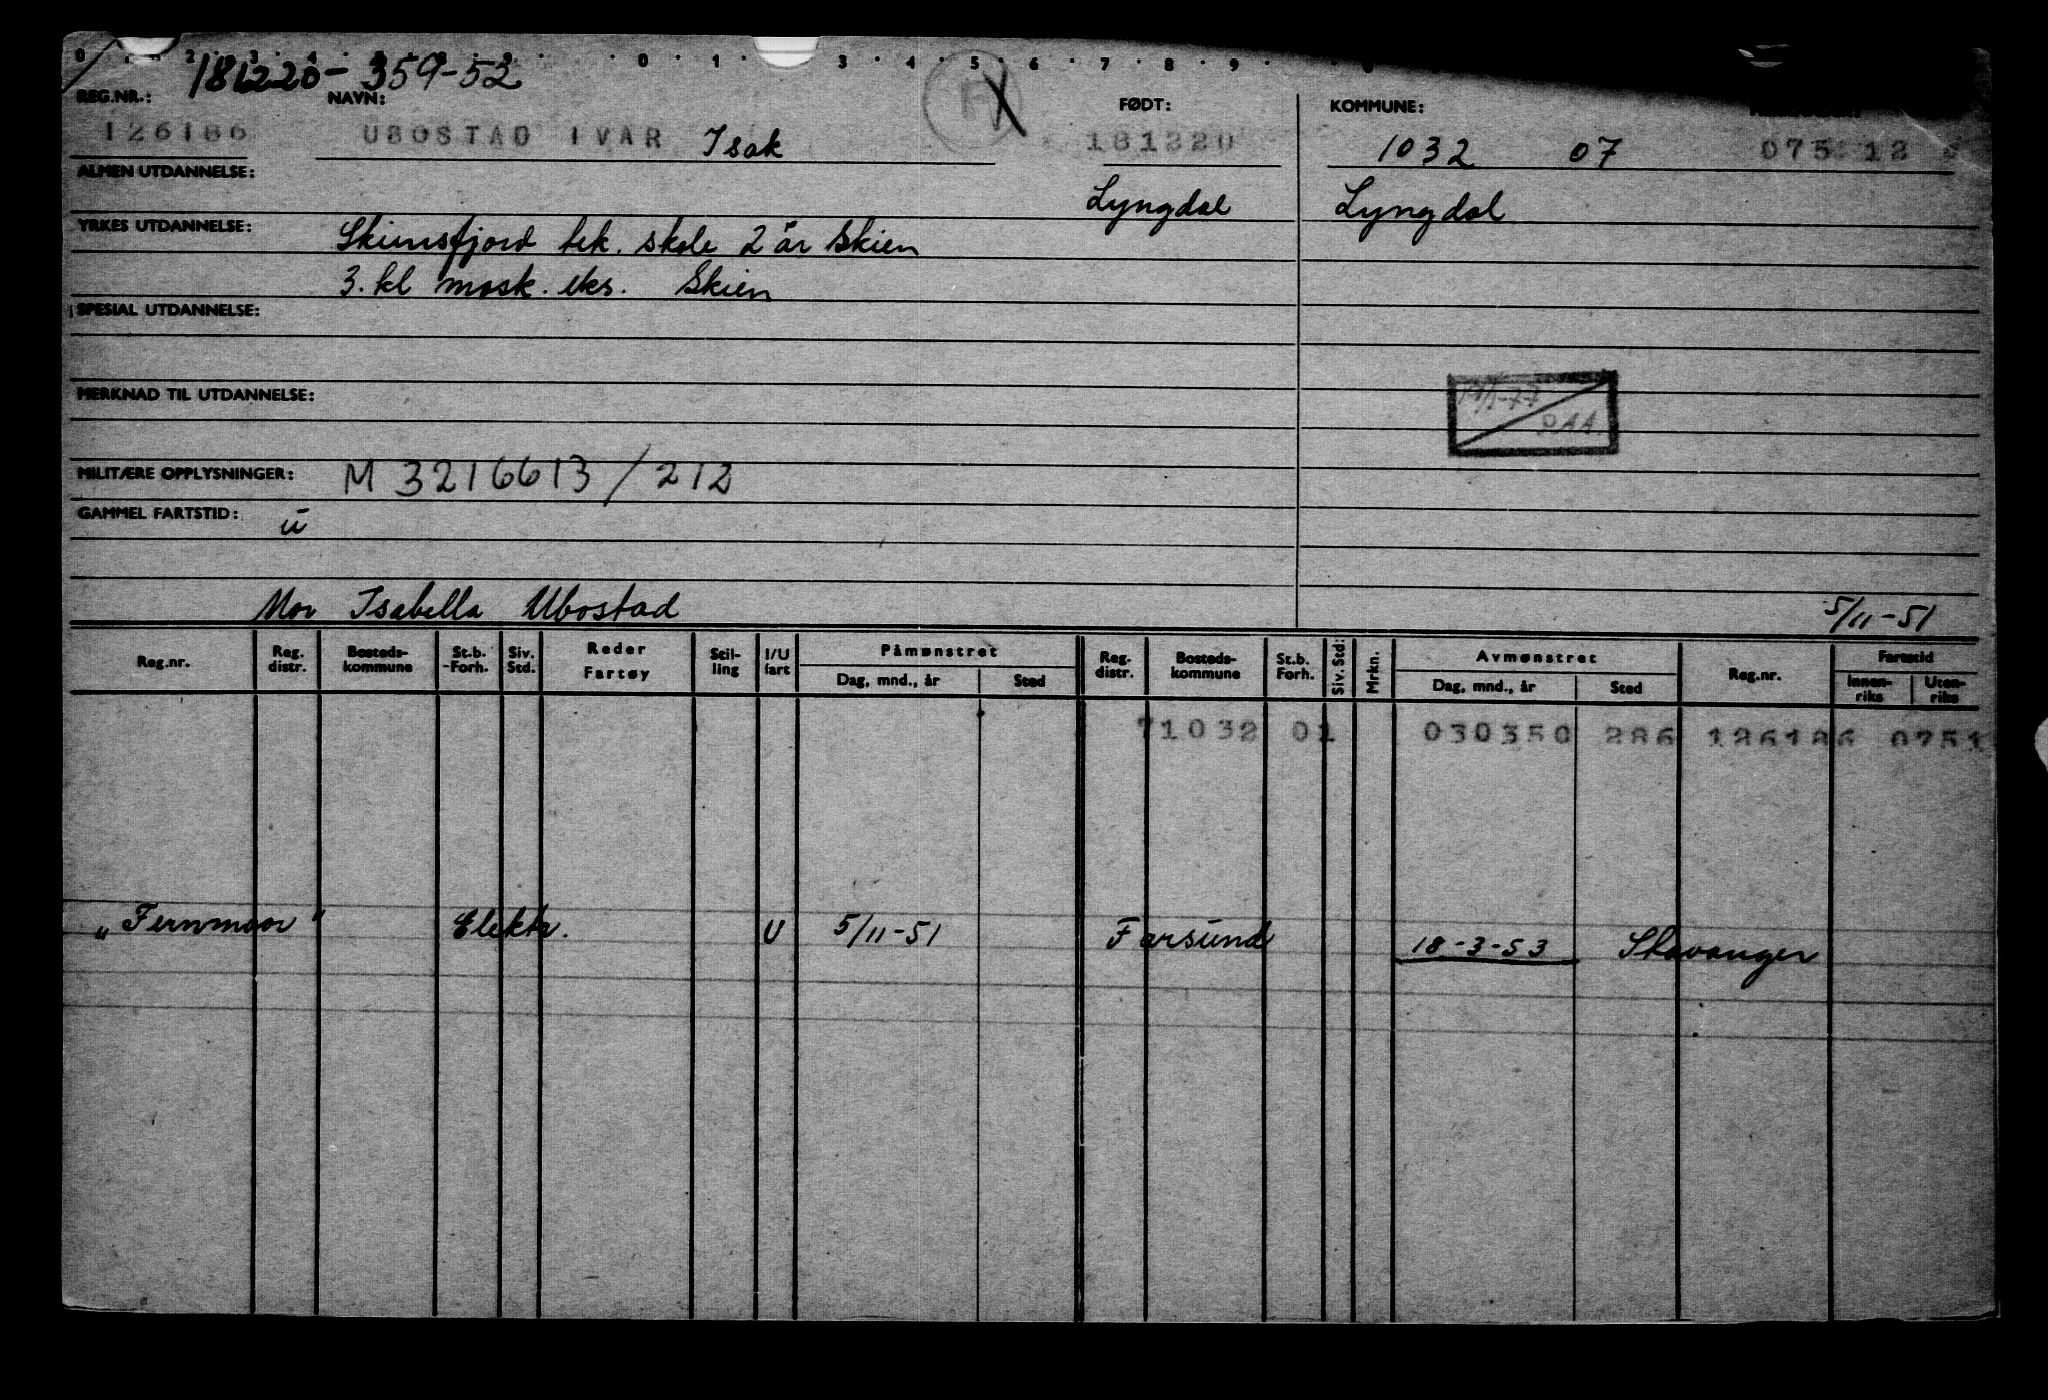 181220-359-52
REG.NR.: NAVN: FØDT: KOMMUNE:
126186 UBOSTAD IVAR Isak 181220 1032 07 075 12
ALMEN UTDANNELSE: Lyngdal Lyngdal
YRKES UTDANNELSE: Skiensfjord tek. skole 2 år Skien
3. kl mask. eks. Skien
SPESIAL UTDANNELSE:
MERKNAD TIL UTDANNELSE:
MILITÆRE OPPLYSNINGER: M 3216613/212
GAMMEL FARTSTID: u
Mor Isabella Ubostad 5/11-51
Reg.nr. Reg. distr. Bosteds-kommune St.b. -Forh. Siv. Std. Reder Fartøy Stil-ling I/U fart Påmønstret Dag, mnd., år Sted Reg. distr. Bosteds-kommune St.b. Forh. Siv. Std: Mrkn. Avmønstret Dag, mnd., år Sted Reg.nr. Fartstid Innen-riks Uten-riks
71032 01 030350 286 126186 0751
"Fernmoor" Elektr. U 5/11-51 Farsund 18-3-53 Stavanger